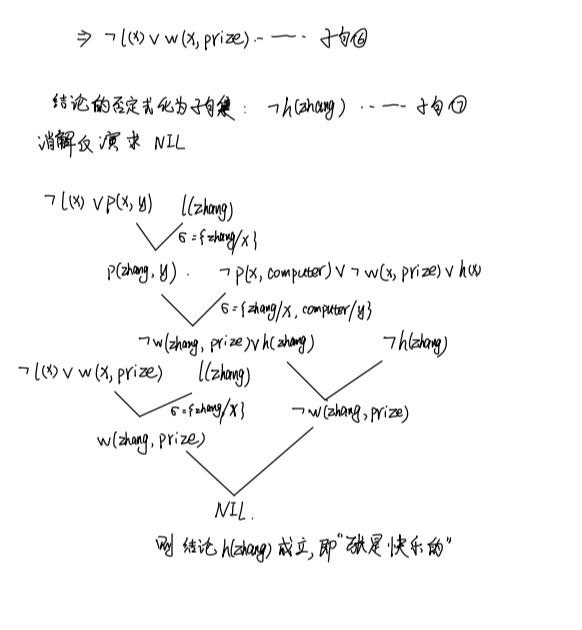 ⇒ ¬l(x) ∨ w(x, prize) ...... 子句⑥
结论的否定式化为子句集: ¬h(zhang) ...... 子句⑦
消解反演求 NIL
¬l(x) ∨ p(x, y) l(zhang)
σ={zhang/x}
p(zhang, y). ¬p(x, computer) ∨ ¬w(x, prize) ∨ h(x)
σ={zhang/x, computer/y}
¬w(zhang, prize) ∨ h(zhang) ¬h(zhang)
¬l(x) ∨ w(x, prize) l(zhang)
σ={zhang/x} ¬w(zhang, prize)
w(zhang, prize)
NIL.
则 结论 h(zhang) 成立, 即“张是快乐的”